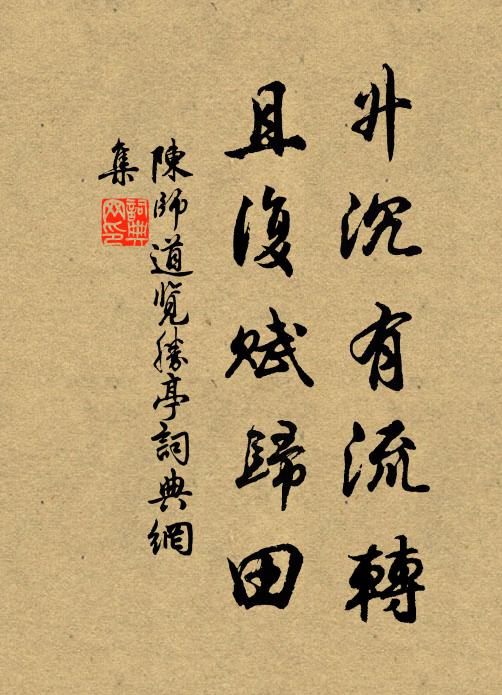 升沉有流轉
且復賦歸田
陳師道覽勝亭詞典網
集
詞典
网印